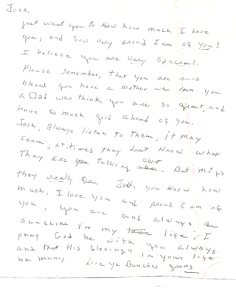 Josh,
just want you to know how much I love
you, and how very proud I am of you!
I believe you are very special!
Please remember, that you are so
blessed you have a mother who loves you
a Dad who thinks you are so great, and
have so much good ahead of you..
Josh, always listen to them, it may
seem, at times they don't know what
They are talking about. But
they really Do. Josh, you know how
much, I love you and proud I am of
you, you are and always
sunshine in my life! I
pray God be with you always
and that His blessings in your life
be many. Love ya Bunches